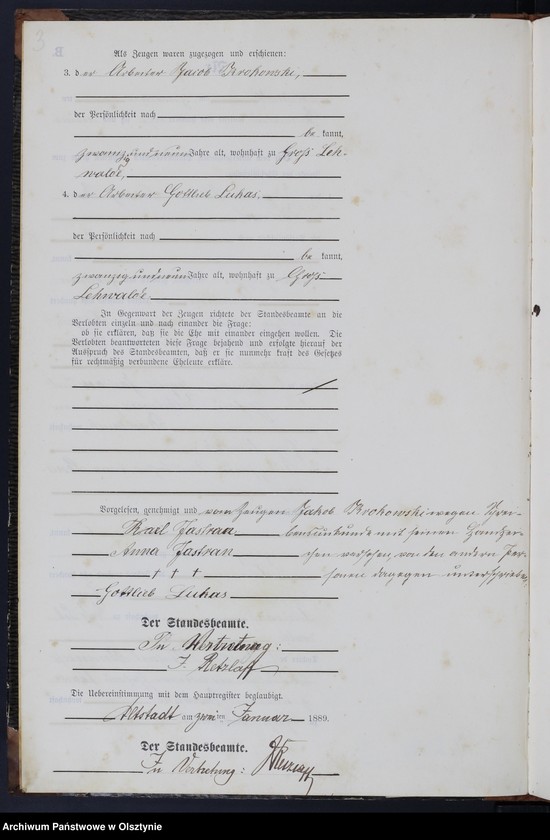 3
B
Als Zeugen waren zugezogen und erschienen:
3. der Arbeiter Jacob Krokowski,
der Persönlichkeit nach
be kannt,
zwanzigundneun Jahre alt, wohnhaft zu Groß Leh-
walde,
4. der Arbeiter Gottlieb Lukas,
der Persönlichkeit nach
be kannt,
zwanzigundneun Jahre alt, wohnhaft zu Groß
Lehwalde.
In Gegenwart der Zeugen richtete der Standesbeamte an die
Verlobten einzeln und nach einander die Frage:
ob sie erklären, daß sie die Ehe mit einander eingehen wollen. Die
Verlobten beantworteten diese Frage bejahend und erfolgte hierauf der
Ausspruch des Standesbeamten, daß er sie nunmehr kraft des Gesetzes
für rechtmäßig verbundene Eheleute erkläre.
Vorgelesen, genehmigt und vom Zeugen Jakob Krokowski wegen Schrei-
Karl Jastran bensunkunde mit seinen Handzei-
Anna Jastran chen versehen, von den andern Per-
† † † sonen dagegen unterschrieben,
Gottlieb Lukas
Der Standesbeamte.
In Vertretung:
F. Retzlaff
Die Uebereinstimmung mit dem Hauptregister beglaubigt.
Altstadt am zwei ten Januar 1889.
Der Standesbeamte.
In Vertretung:
Archiwum Państwowe w Olsztynie